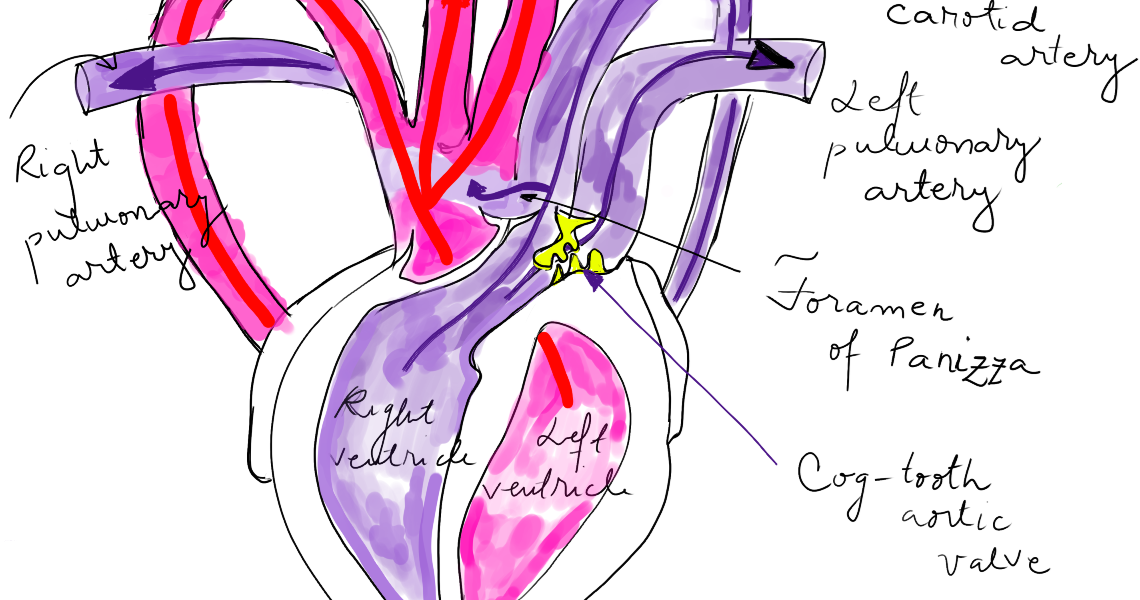 carotid
artery
Left
pulmonary
artery
Right
pulmonary
artery
Foramen
of Panizza
Right
ventricle
Left
ventricle
Cog-tooth
aortic
valve